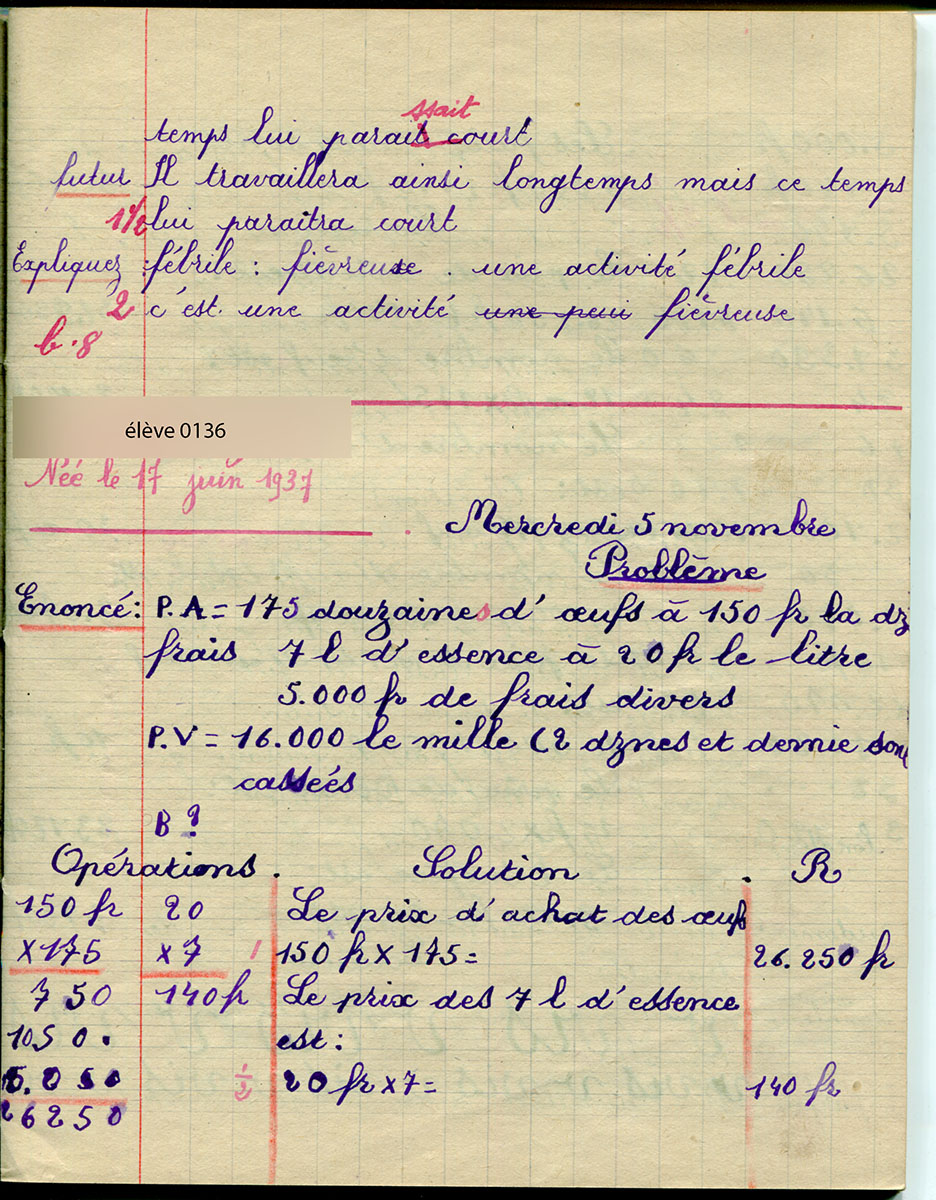 ssait
temps lui parait court
futur Il travaillera ainsi longtemps mais ce temps
1½ lui paraitra court
Expliquez : fébrile : fièvreuse . une activité fébrile
2 c'est une activité une peu fièvreuse
b.8
élève 0136
Née le 17 juin 1937
Mercredi 5 novembre
Problème
Enoncé : P.A = 175 douzaines d'œufs à 150 fr la dz
frais 7 l d'essence à 20 fr le litre
5.000 fr de frais divers
P.V = 16.000 le mille (2 dznes et demie sont
cassées
B ?
Opérations . Solution . R
150 fr 20 Le prix d'achat des œufs
X 175 x 7 1 150 fr X 175 = 26.250 fr
750 140 fr Le prix des 7 l d'essence
1050. est :
½ 20 fr x 7 = 140 fr
26250